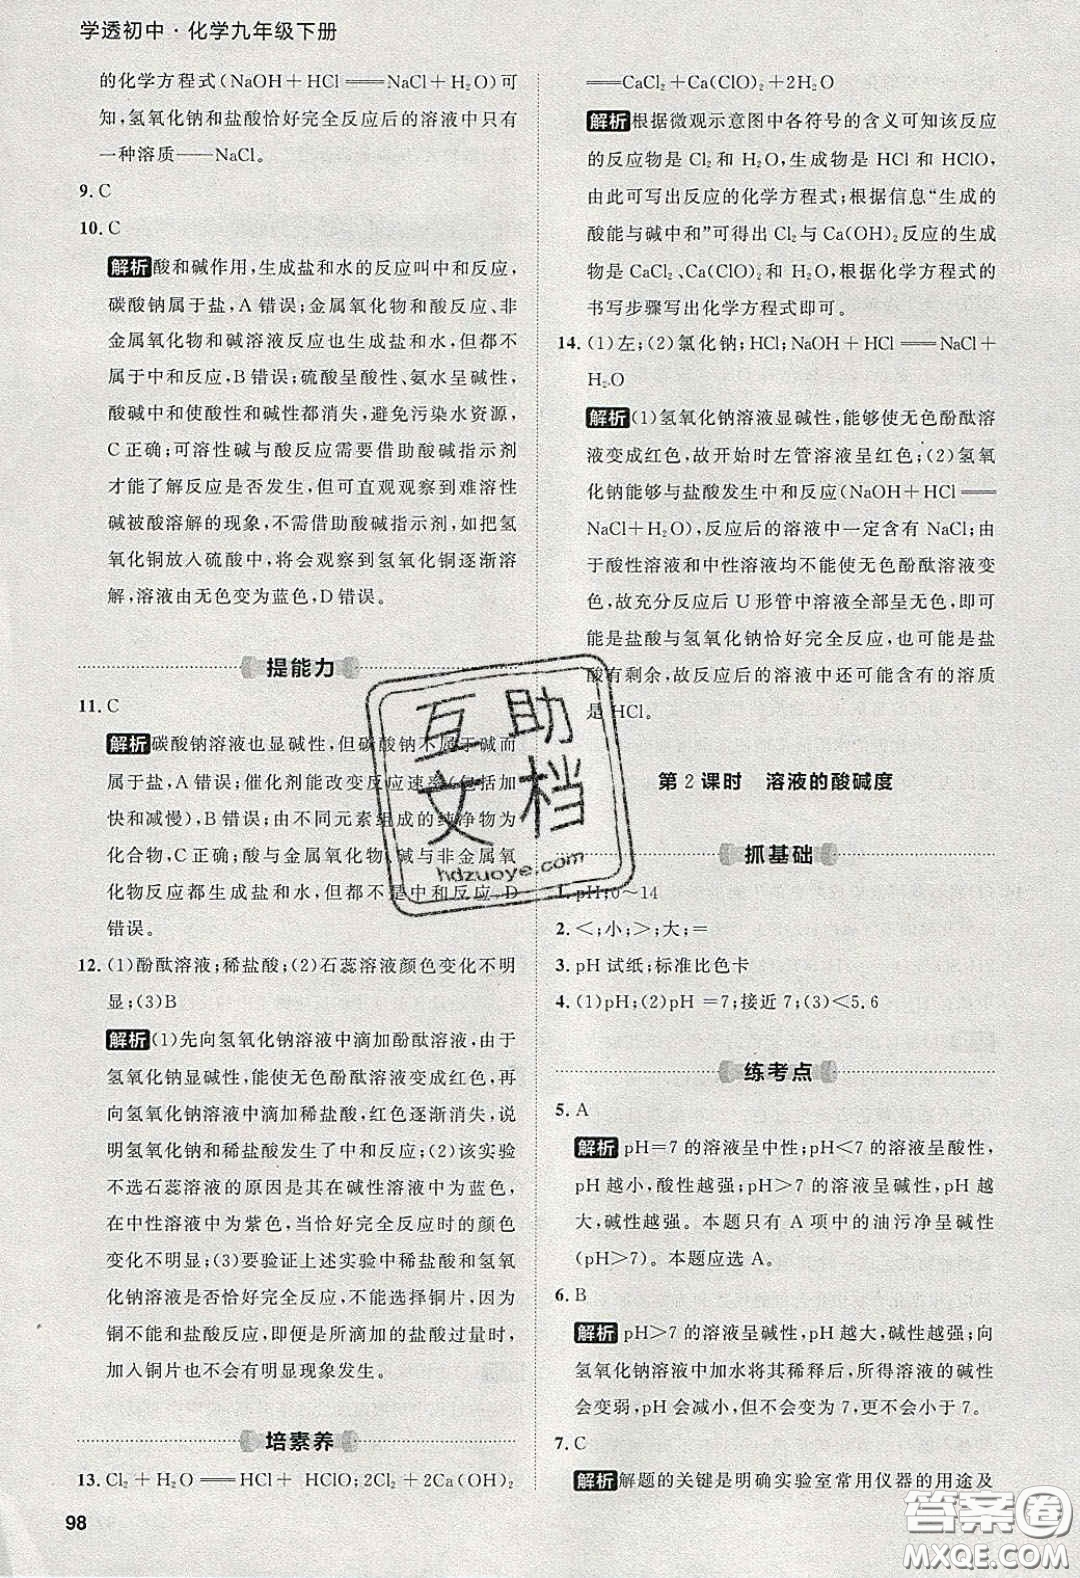 学透初中·化学九年级下册
的化学方程式(NaOH＋HCl══NaCl＋H₂O)可
知，氢氧化钠和盐酸恰好完全反应后的溶液中只有
一种溶质——NaCl。
9. C
10. C
解析 酸和碱作用，生成盐和水的反应叫中和反应，
碳酸钠属于盐，A 错误；金属氧化物和酸反应、非
金属氧化物和碱溶液反应也生成盐和水，但都不
属于中和反应，B 错误；硫酸呈酸性、氨水呈碱性，
酸碱中和使酸性和碱性都消失，避免污染水资源，
C 正确；可溶性碱与酸反应需要借助酸碱指示剂
才能了解反应是否发生，但可直观观察到难溶性
碱被酸溶解的现象，不需借助酸碱指示剂，如把氢
氧化铜放入硫酸中，将会观察到氢氧化铜逐渐溶
解，溶液由无色变为蓝色，D 错误。
提能力
11. C
解析 碳酸钠溶液也显碱性，但碳酸钠不属于碱而
属于盐，A 错误；催化剂能改变反应速率(包括加
快和减慢)，B 错误；由不同元素组成的纯净物为
化合物，C 正确；酸与金属氧化物、碱与非金属氧
化物反应都生成盐和水，但都不是中和反应，D
错误。
12. (1)酚酞溶液；稀盐酸；(2)石蕊溶液颜色变化不明
显；(3)B
解析 (1)先向氢氧化钠溶液中滴加酚酞溶液，由于
氢氧化钠溶液显碱性，能使无色酚酞溶液变成红色，再
向氢氧化钠溶液中滴加稀盐酸，红色逐渐消失，说
明氢氧化钠和稀盐酸发生了中和反应；(2)该实验
不选石蕊溶液的原因是其在碱性溶液中为蓝色，
在中性溶液中为紫色，当恰好完全反应时的颜色
变化不明显；(3)要验证上述实验中稀盐酸和氢氧
化钠溶液是否恰好完全反应，不能选择铜片，因为
铜不能和盐酸反应，即便是所滴加的盐酸过量时，
加入铜片也不会有明显现象发生。
培素养
13. Cl₂＋H₂O══HCl＋HClO；2Cl₂＋2Ca(OH)₂
98
══CaCl₂＋Ca(ClO)₂＋2H₂O
解析 根据微观示意图中各符号的含义可知该反应
的反应物是 Cl₂ 和 H₂O，生成物是 HCl 和 HClO，
由此可写出反应的化学方程式；根据信息“生成的
酸能与碱中和”可得出 Cl₂ 与 Ca(OH)₂ 反应的生成
物是 CaCl₂、Ca(ClO)₂ 和 H₂O，根据化学方程式的
书写步骤写出化学方程式即可。
14. (1)左；(2)氯化钠；HCl；NaOH＋HCl══NaCl＋
H₂O
解析 (1)氢氧化钠溶液显碱性，能够使无色酚酞溶
液变成红色，故开始时左管溶液呈红色；(2)氢氧
化钠能够与盐酸发生中和反应(NaOH＋HCl══
NaCl＋H₂O)，反应后的溶液中一定含有 NaCl；由
于酸性溶液和中性溶液均不能使无色酚酞溶液变
色，故充分反应后 U 形管中溶液全部呈无色，即可
能是盐酸与氢氧化钠恰好完全反应，也可能是盐
酸有剩余，故反应后的溶液中还可能含有的溶质
是 HCl。
第 2 课时 溶液的酸碱度
抓基础
1. pH；0～14
2. ＜；小；＞；大；＝
3. pH 试纸；标准比色卡
4. (1)pH；(2)pH＝7；接近 7；(3)＜5.6
练考点
5. A
解析 pH＝7 的溶液呈中性；pH＜7 的溶液呈酸性，
pH 越小，酸性越强；pH＞7 的溶液呈碱性，pH 越
大，碱性越强。本题只有 A 项中的油污净呈碱性
(pH＞7)。本题应选 A。
6. B
解析 pH＞7 的溶液呈碱性，pH 越大，碱性越强；向
氢氧化钠溶液中加水将其稀释后，所得溶液的碱性
会变弱，pH 变小，但不会变为 7，更不会小于 7。
7. C
解析 解题的关键是明确实验室常用仪器的用途及
互助文档
hdzuoye.com
答案圈
MXQE.COM